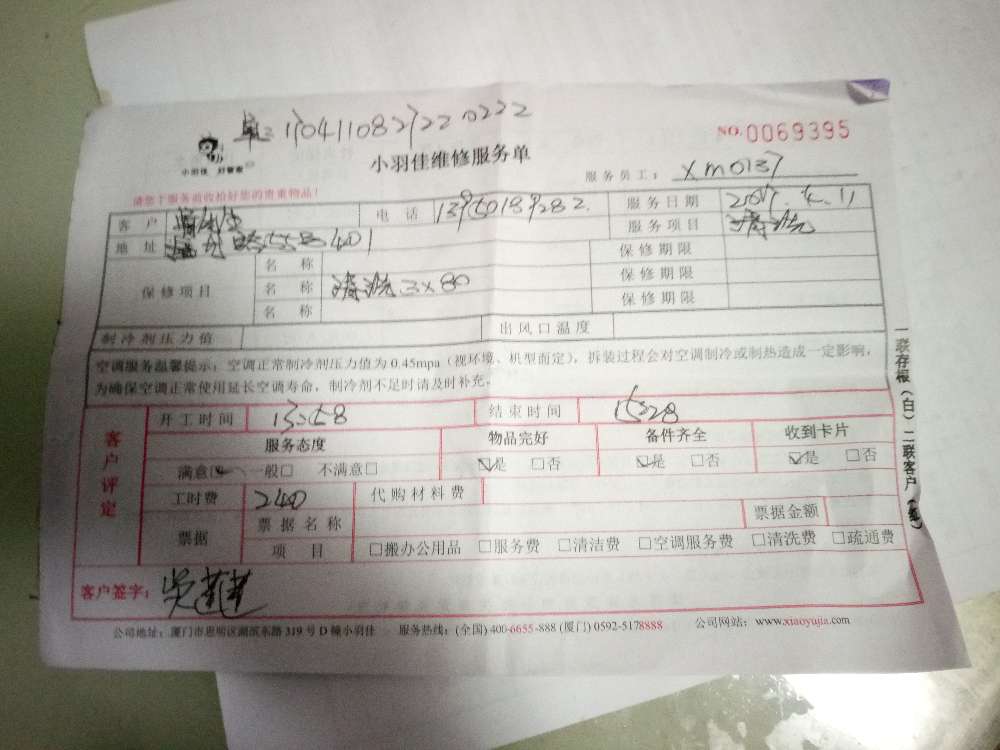 单:1704110827220222
NO.0069395
小羽佳 好管家
小羽佳维修服务单
服务员工: xm0137
请您于服务前收拾好您的贵重物品!
客户 电话 13950189282. 服务日期 2017.4.11
地址 401 服务项目 清洗
保修项目 名称 保修期限
名称 清洗3×80 保修期限
名称 保修期限
制冷剂压力值 出风口温度
空调服务温馨提示:空调正常制冷剂压力值为0.45mpa(视环境、机型而定),拆装过程会对空调制冷或制热造成一定影响,
为确保空调正常使用延长空调寿命,制冷剂不足时请及时补充。
客户评定
开工时间 13:58 结束时间 15:28
服务态度 物品完好 备件齐全 收到卡片
满意☑ 一般□ 不满意□ ☑是 □否 ☑是 □否 ☑是 □否
工时费 240 代购材料费
票据 票据名称 票据金额
项目 □搬办公用品 □服务费 □清洁费 □空调服务费 □清洗费 □疏通费
客户签字: 吴莲莲
公司地址:厦门市思明区湖滨东路319号D幢小羽佳 服务热线:(全国)400-6655-888 (厦门)0592-5178888 公司网站:www.xiaoyujia.com
一联存根(白)二联客户(红)